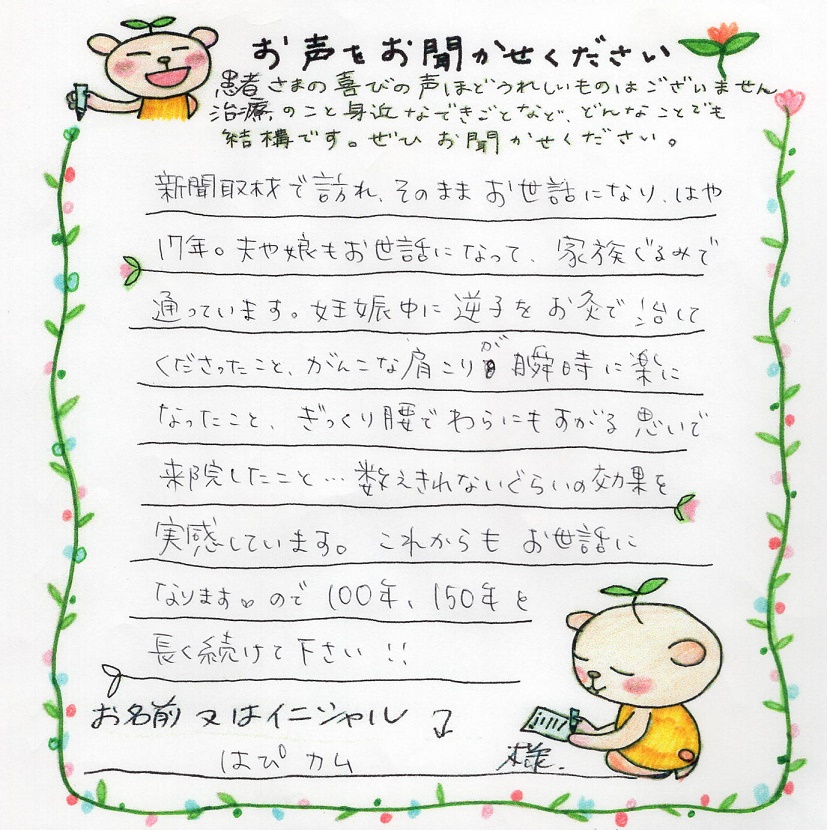 お声をお聞かせください
患者さまの喜びの声ほどうれしいものはございません
治療のこと身近なできごとなど、どんなことでも
結構です。ぜひお聞かせください。
新聞取材で訪れ、そのままお世話になり、はや
17年。夫や娘もお世話になって、家族ぐるみで
通っています。妊娠中に逆子をお灸で治して
くださったこと、がんこな肩こりが瞬時に楽に
なったこと、ぎっくり腰でわらにもすがる思いで
来院したこと…数えきれないぐらいの効果を
実感しています。これからもお世話に
なります。ので100年、150年と
長く続けて下さい!!
お名前又はイニシャル↓
はぴカム 様.